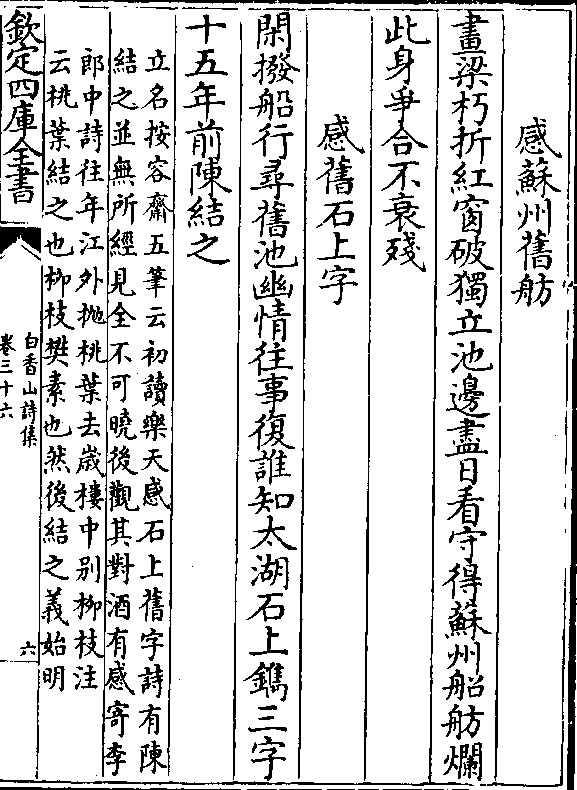 感蘇州舊舫
畫梁朽折紅窗破獨立池邊盡日看守得蘇州船舫爛
此身爭合不衰殘
感舊石上字
閑撥船行尋舊池幽情往事復誰知太湖石上鐫三字
十五年前陳結之
立名按容齋五筆云初讀樂天感石上舊字詩有陳
結之並無所經見全不可曉後觀其對酒有感寄李
郎中詩往年江外抛桃葉去歲樓中别柳枝注
云桃葉結之也柳枝樊素也然後結之義始明
欽定四庫全書
白香山詩集
卷三十六
六